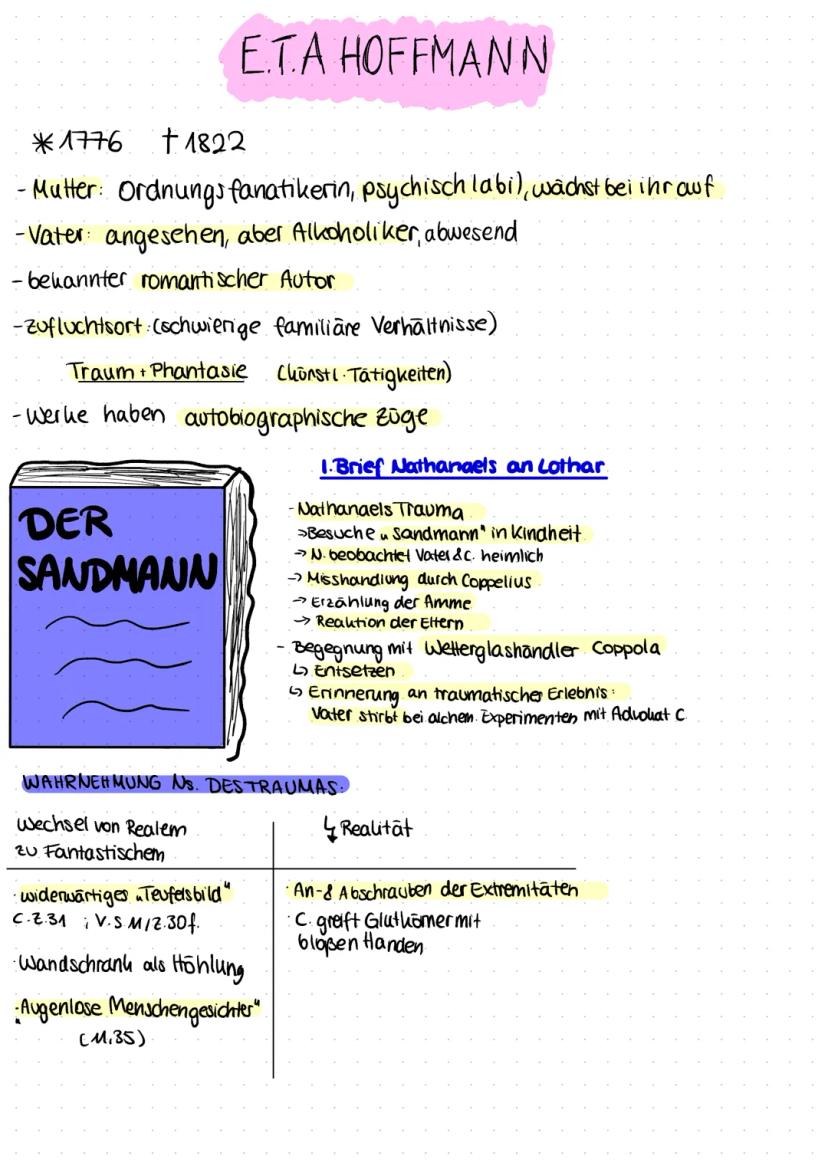 E.T.A HOFFMANN
*1776 †1822
- Mutter: Ordnungsfanatikerin, psychisch labil, wächst bei ihr auf
- Vater: angesehen, aber Alkoholiker, abwesend
- bekannter romantischer Autor
- Zufluchtsort: (schwierige familiäre Verhältnisse)
Traum + Phantasie (künstl. Tätigkeiten)
- Werke haben autobiographische Züge
DER
SANDMANN
1. Brief Nathanaels an Lothar
- Nathanaels Trauma
→ Besuche „Sandmann" in Kindheit
→ N. beobachtet Vater & C. heimlich
→ Misshandlung durch Coppelius
→ Erzählung der Amme
→ Reaktion der Eltern
- Begegnung mit Wetterglashändler Coppola
↳ Entsetzen
↳ Erinnerung an traumatischer Erlebnis:
Vater stirbt bei alchem. Experimenten mit Advokat C.
WAHRNEHMUNG Ns. DES TRAUMAS:
Wechsel von Realem
zu Fantastischem
↳ Realität
· widerwärtiges „Teufelsbild"
C. Z.31 ; V. S 11/Z.30f.
· Wandschrank als Höhlung
· „Augenlose Menschengesichter"
(11,35)
· An- & Abschrauben der Extremitäten
· C. greift Glutkörner mit
bloßen Händen